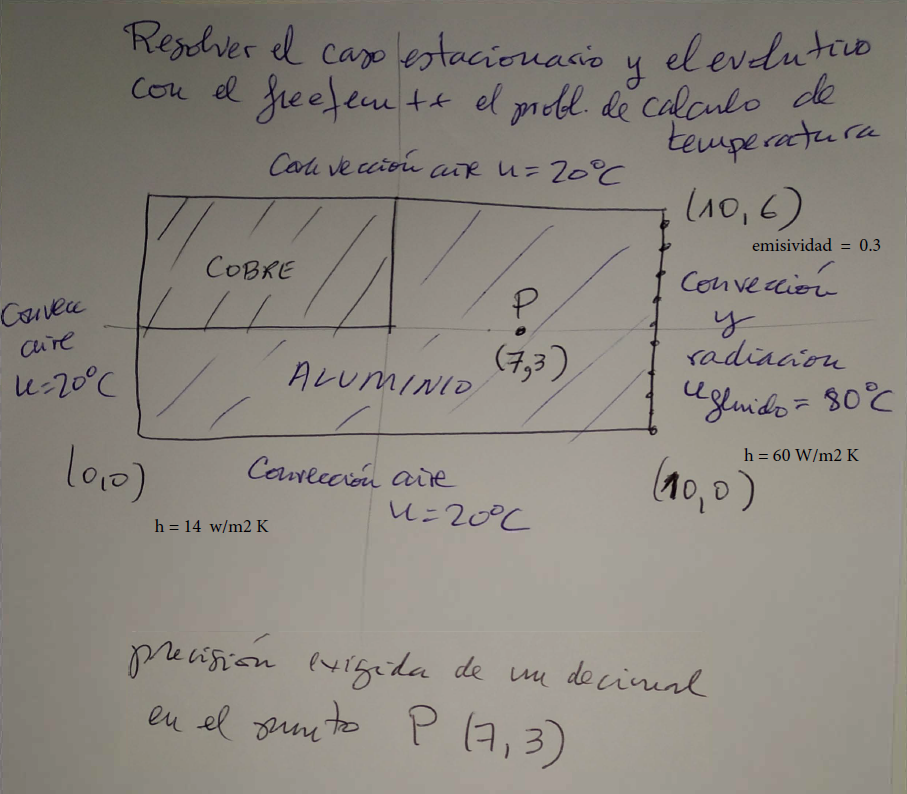 Resolver el caso estacionario y el evolutivo
con el freefem ++ el probl. de calculo de
temperatura
Convección aire u = 20°C
(10,6)
emisividad = 0.3
COBRE
Convección
y
radiacion
u fluido = 80°C
Convecc
aire
u = 20°C
P
(7,3)
ALUMINIO
h = 60 W/m2 K
(0,0)
Convección aire
u = 20°C
(10,0)
h = 14 w/m2 K
precisión exigida de un decimal
en el punto P (7,3)